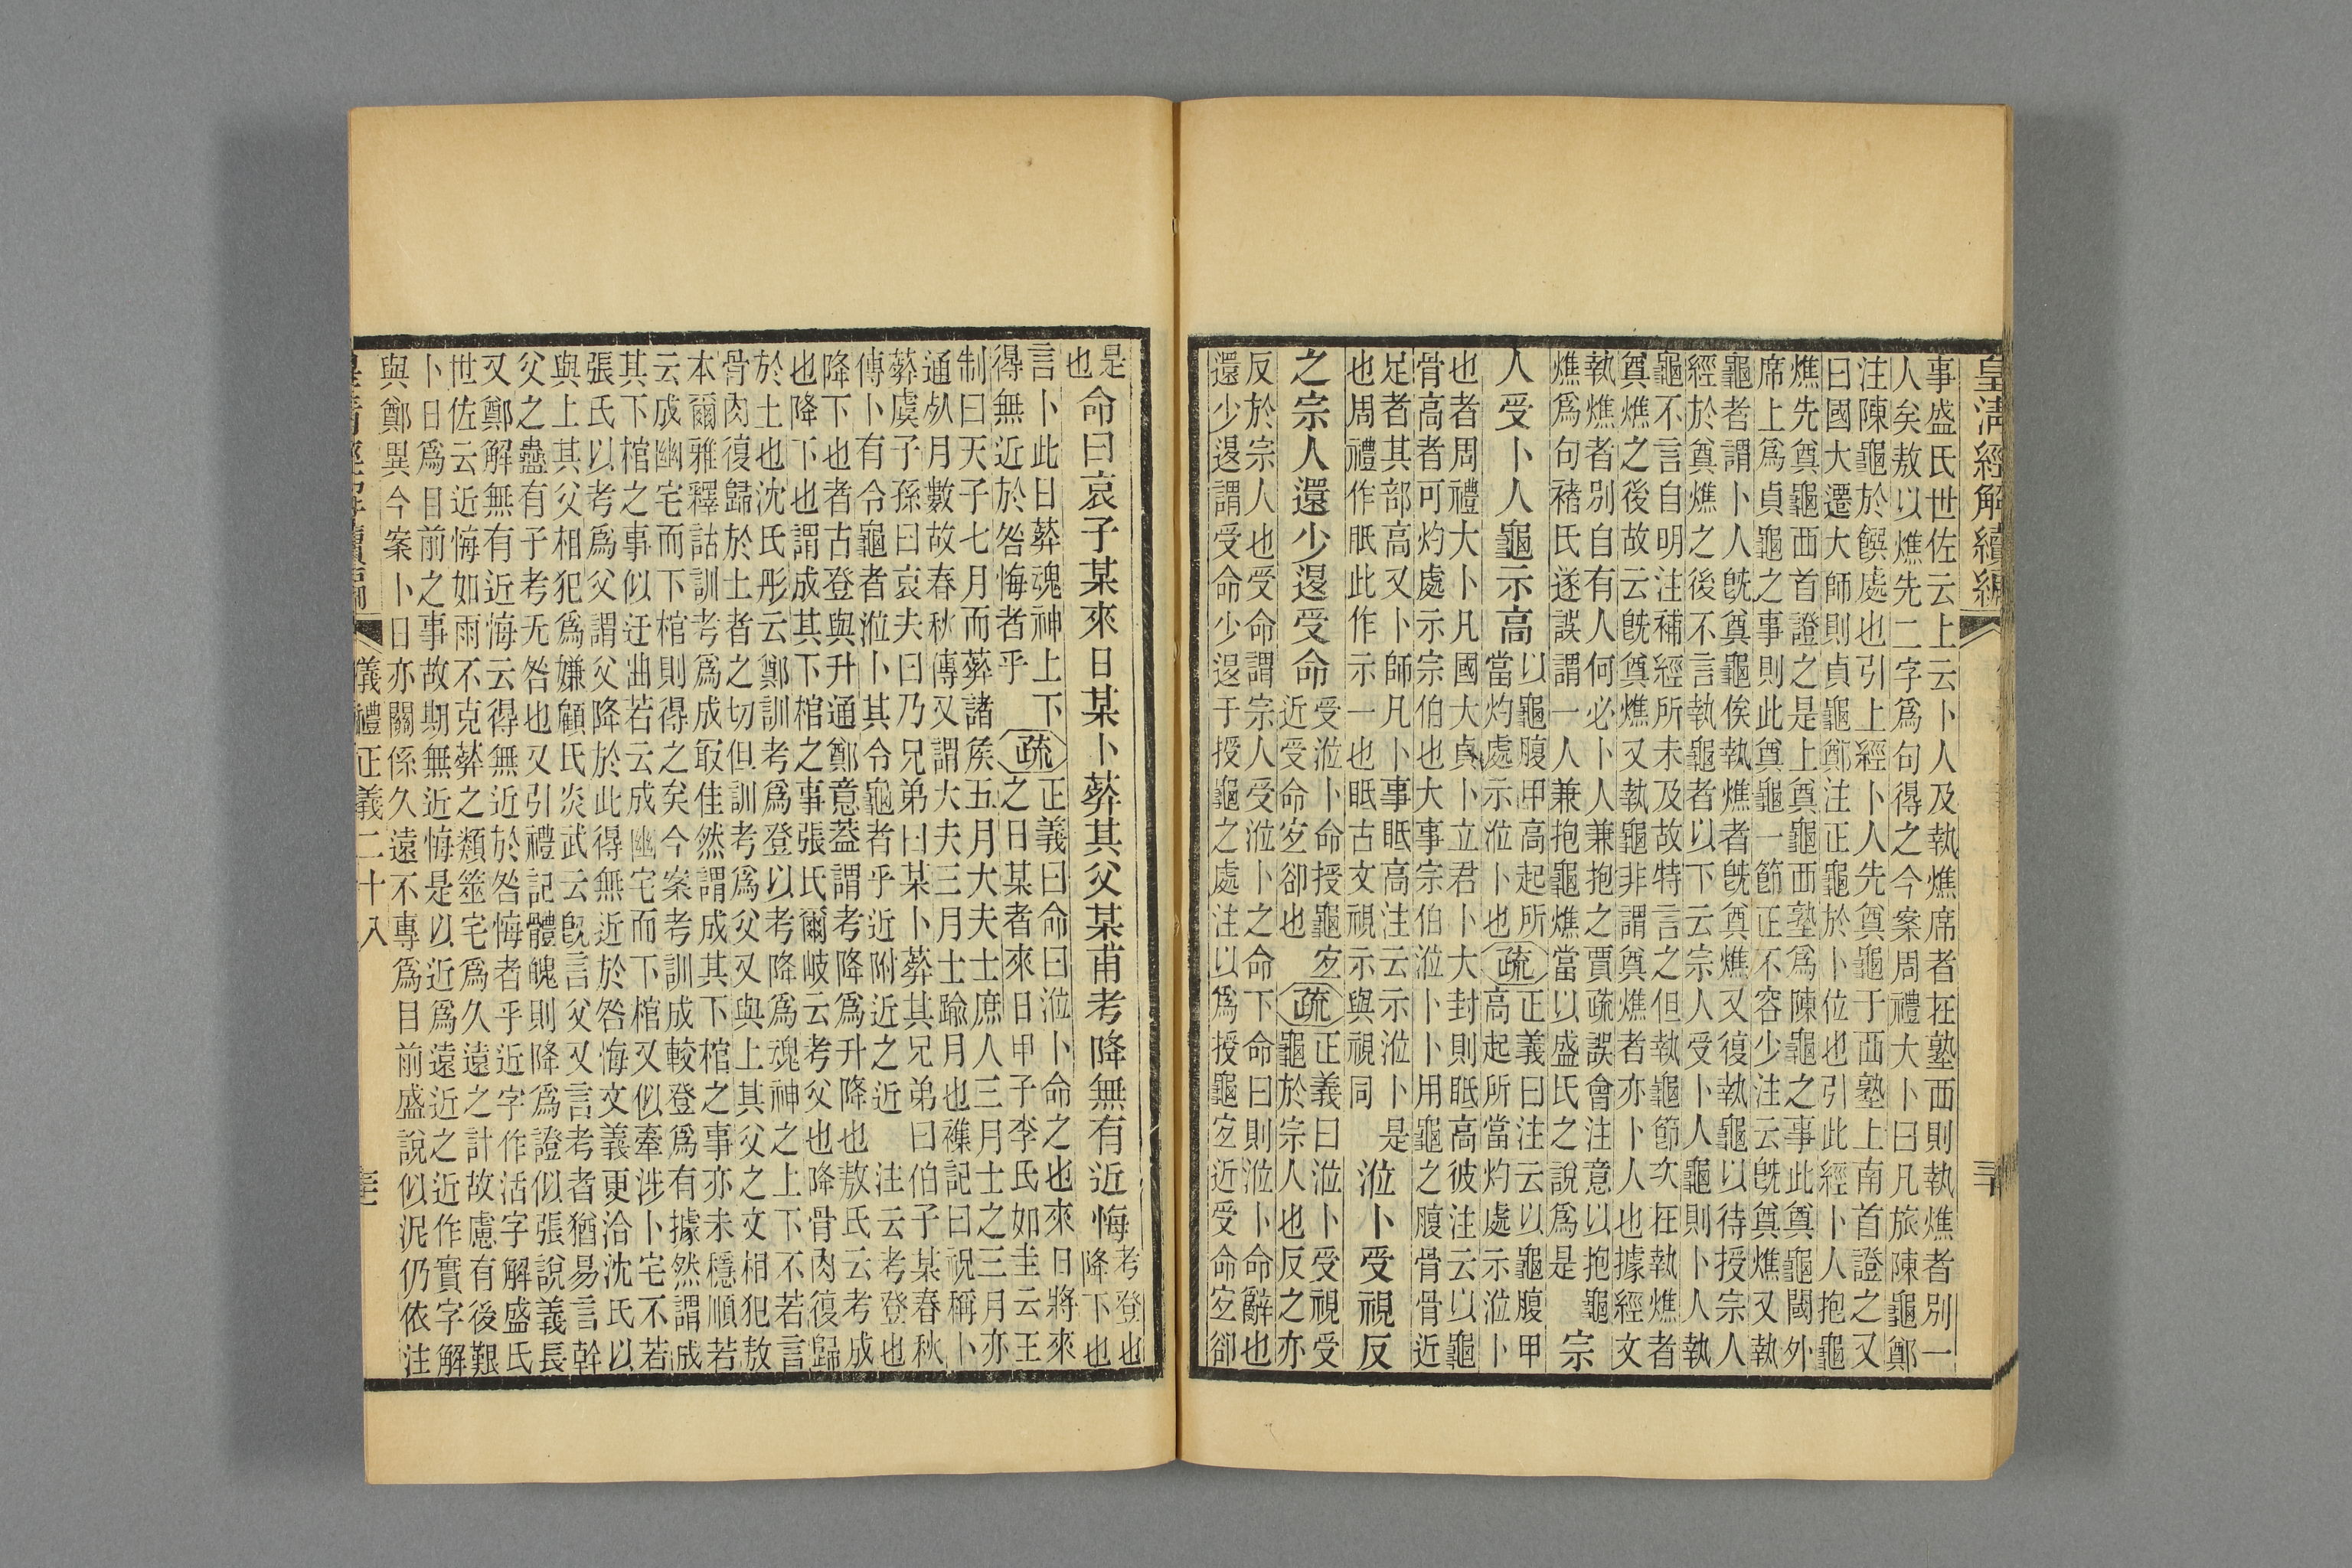 皇清經解續編
三十
事盛氏世佐云上云卜人及執燋席者在塾西則執燋者別一
人矣敖以燋先二字爲句得之今案周禮大卜曰凡旅陳龜鄭
注陳龜於饌處也引上經卜人先奠龜于西塾上南首證之又
曰國大遷大師則貞龜鄭注正龜於卜位也引此經卜人抱龜
燋先奠龜西首證之是上奠龜西塾爲陳龜之事此奠龜閾外
席上爲貞龜之事則此奠龜一節正不容少注云旣奠燋又執
龜者謂卜人旣奠龜俟執燋者旣奠燋又復執龜以待授宗人
經於奠燋之後不言執龜者以下云宗人受卜人龜則卜人執
龜不言自明注補經所未及故特言之但執龜節次在執燋者
奠燋之後故云旣奠燋又執龜非謂奠燋者亦卜人也據經文
執燋者別自有人何必卜人兼抱之賈疏誤會注意以抱龜
燋爲句褚氏遂誤謂一人兼抱龜燋當以盛氏之說爲是
宗
人受卜人龜示高
以龜腹甲高起所
當灼處示涖卜也
疏
正義曰注云以龜腹甲
高起所當灼處示涖卜
也者周禮大卜凡國大貞卜立君卜大封則眡高彼注云以龜
骨高者可灼處示宗伯也大事宗伯涖卜卜用龜之腹骨骨近
足者其部高又卜師凡卜事眡高注云示涖卜是
也周禮作眡此作示一也眡古文視示與視同
涖卜受視反
之宗人還少退受命
受涖卜命授龜宐
近受命宐卻也
疏
正義曰涖卜受視受
龜於宗人也反之亦
反於宗人也受命謂宗人受涖卜之命下命曰則涖卜命辭也
還少退謂受命少退于授龜之處注以爲授龜宐近受命宐卻
是
也
命曰哀子某來日某卜葬其父某甫考降無有近悔
考登也
降下也
言卜此日葬魂神上下
得無近於咎悔者乎
疏
正義曰命曰涖卜命之也來日將來
之日某者來日甲子李氏如圭云王
制曰天子七月而葬諸矦五月大夫士庶人三月士之三月亦
通死月數故春秋傳又謂大夫三月士踰月也襍記曰祝稱卜
葬虞子孫曰哀夫曰乃兄弟曰某卜葬其兄弟曰伯子某春秋
傳卜有令龜者涖卜其令龜者乎近附近之近　注云考登也
降下也者古登與升通鄭意葢謂考降爲升降也敖氏云考成
也降下也謂成其下棺之事張氏爾岐云考父也降骨肉復歸
於土也沈氏彤云鄭訓考爲登以考降爲魂神之上下不若言
骨肉復歸於土者之切但訓考爲父又與上其父之文相犯敖
本爾雅釋詁訓考爲成㝡佳然謂成其下棺之事亦未穩順若
云成幽宅而下棺則得之矣今案考訓成較登爲有據然謂成
其下棺之事似迂曲若云成幽宅而下棺又似牽涉卜宅不若
張氏以考爲父謂父降於此得無近於咎悔文義更洽沈氏以
與上其父相犯爲嫌顧氏炎武云旣言父又言考者猶易言幹
父之蠱有子考无咎也又引禮記體魄則降爲證似張說義長
又鄭解無有近悔云得無近於咎悔者乎近字作活字解盛氏
世佐云近悔如雨不克葬之類筮宅爲久遠之計故慮有後艱
卜日爲目前之事故期無近悔是以近爲遠近之近作實字解
與鄭異今案卜日亦關係久遠不專爲目前盛說似泥仍依注
皇清經解續編
儀禮正義二十八